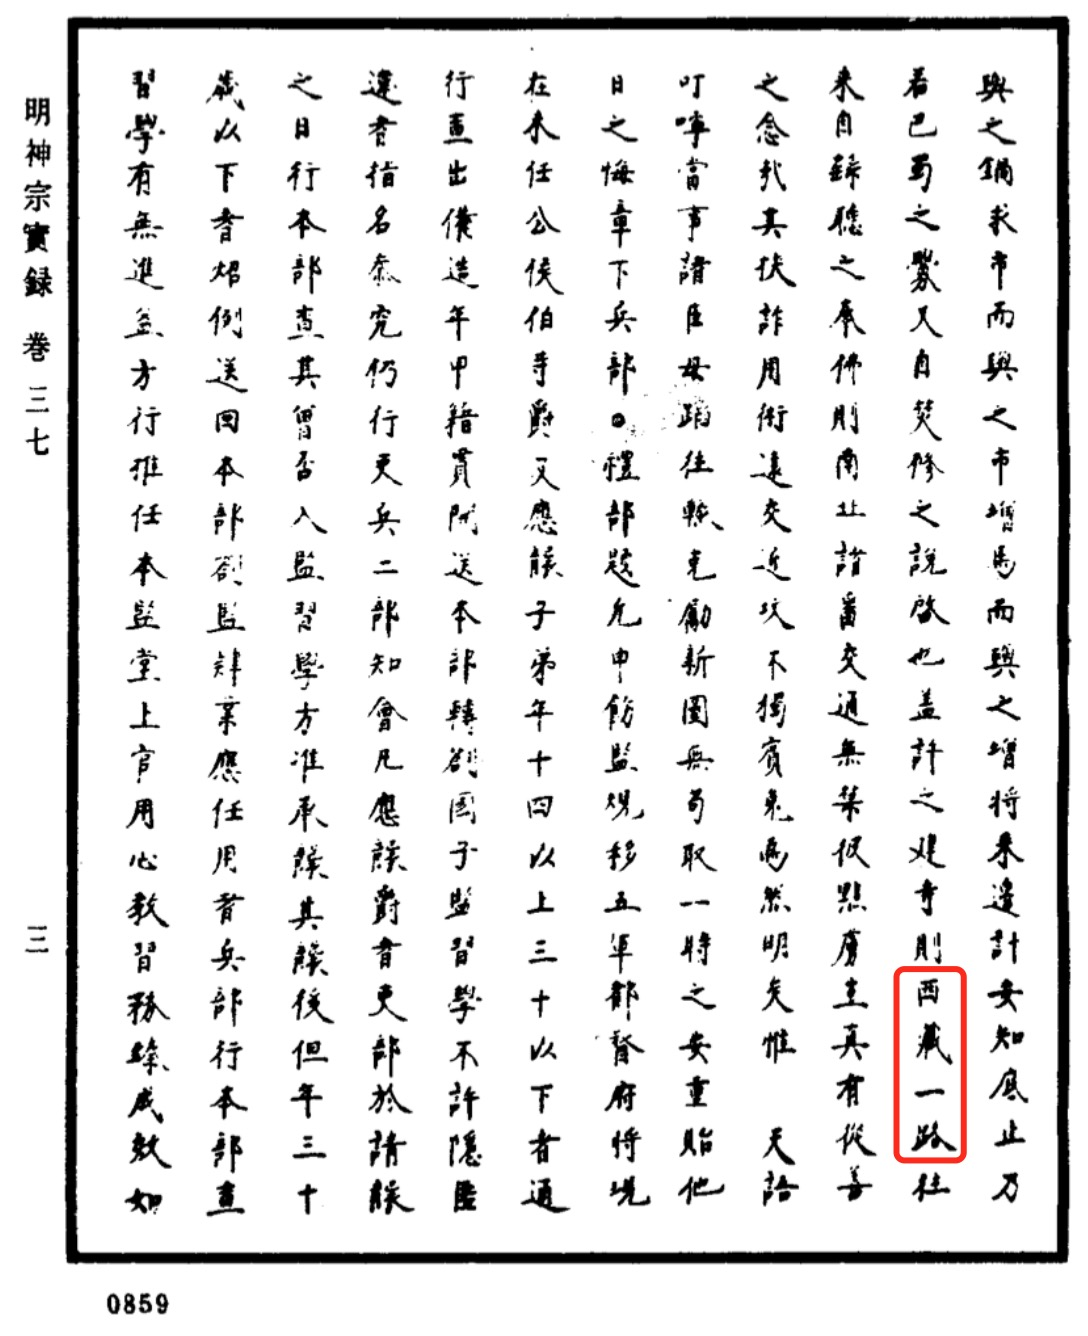 與之鍋求市而與之市增馬而與之增將来邉計安知底止乃
若巴蜀之釁又自焚修之說啟也盖許之建寺則西藏一路往
来自歸聽之奉佛則南北諸畨交通無禁假點虜主真有從善
之念我其挾詐用術遠交近攻不獨賓兎爲然明矣惟 天語
叮嚀當事諸臣毋蹈往轍克勵新圖無茍取一時之安重貽他
日之悔章下兵部〇禮部題允申飭監規移五軍都督府將現
在来任公侯伯等爵又應襲子弟年十四以上三十以下者通
行查出俻造年甲籍貫開送本部轉劄國子監習學不許隱匿
違者指名叅究仍行吏兵二部知會凡應襲爵者吏部於請襲
之日行本部查其曾否入監習學方准承襲其襲後但年三十
歲以下者炤例送回本部劄監肄業應任用者兵部行本部查
習學有無進益方行推任本監堂上官用心教習務臻成效如
明神宗實録 卷三七
三
0859